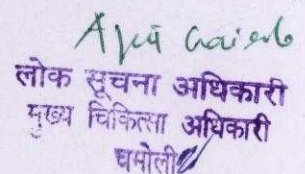 लोक सूचना अधिकारी
मुख्य चिकित्सा अधिकारी
चमोली